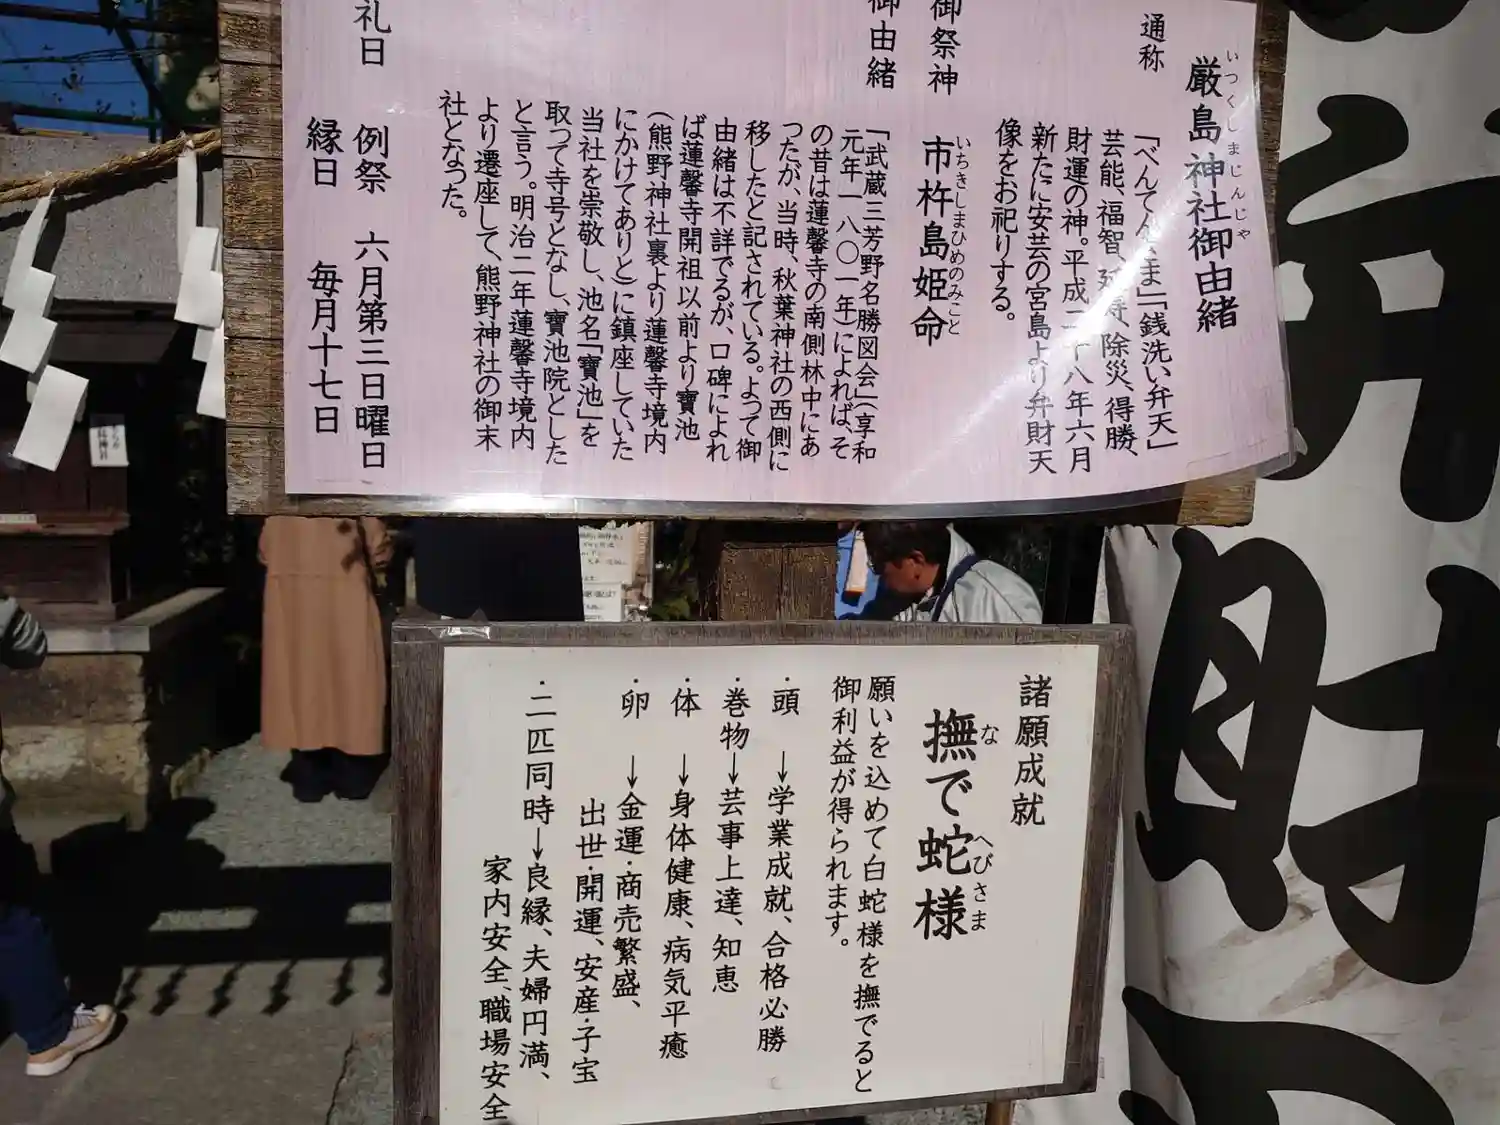 厳島神社御由緒
いつくしまじんじゃ
通称
「べんてんさま」「銭洗い弁天」
芸能、福智、延寿、除災、得勝、
財運の神。平成二十八年六月
新たに安芸の宮島より弁財天
像をお祀りする。
御祭神
市杵島姫命
いちきしまひめのみこと
御由緒
「武蔵三芳野名勝図会」(享和
元年一八〇一年)によれば、そ
の昔は蓮馨寺の南側林中にあ
ったが、当時、秋葉神社の西側に
移したと記されている。よって御
由緒は不詳でるが、口碑によれ
ば蓮馨寺開祖以前より寳池
(熊野神社裏より蓮馨寺境内
にかけてありと)に鎮座していた
当社を崇敬し、池名「寳池」を
取って寺号となし、寳池院とした
と言う。明治二年蓮馨寺境内
より遷座して、熊野神社の御末
社となった。
礼日
例祭 六月第三日曜日
縁日 毎月十七日
諸願成就
撫で蛇様
な へびさま
願いを込めて白蛇様を撫でると
御利益が得られます。
・頭 →学業成就、合格必勝
・巻物→芸事上達、知恵
・体 →身体健康、病気平癒
・卵 →金運・商売繁盛、
出世・開運、安産・子宝
・二匹同時→良縁、夫婦円満、
家内安全、職場安全
財